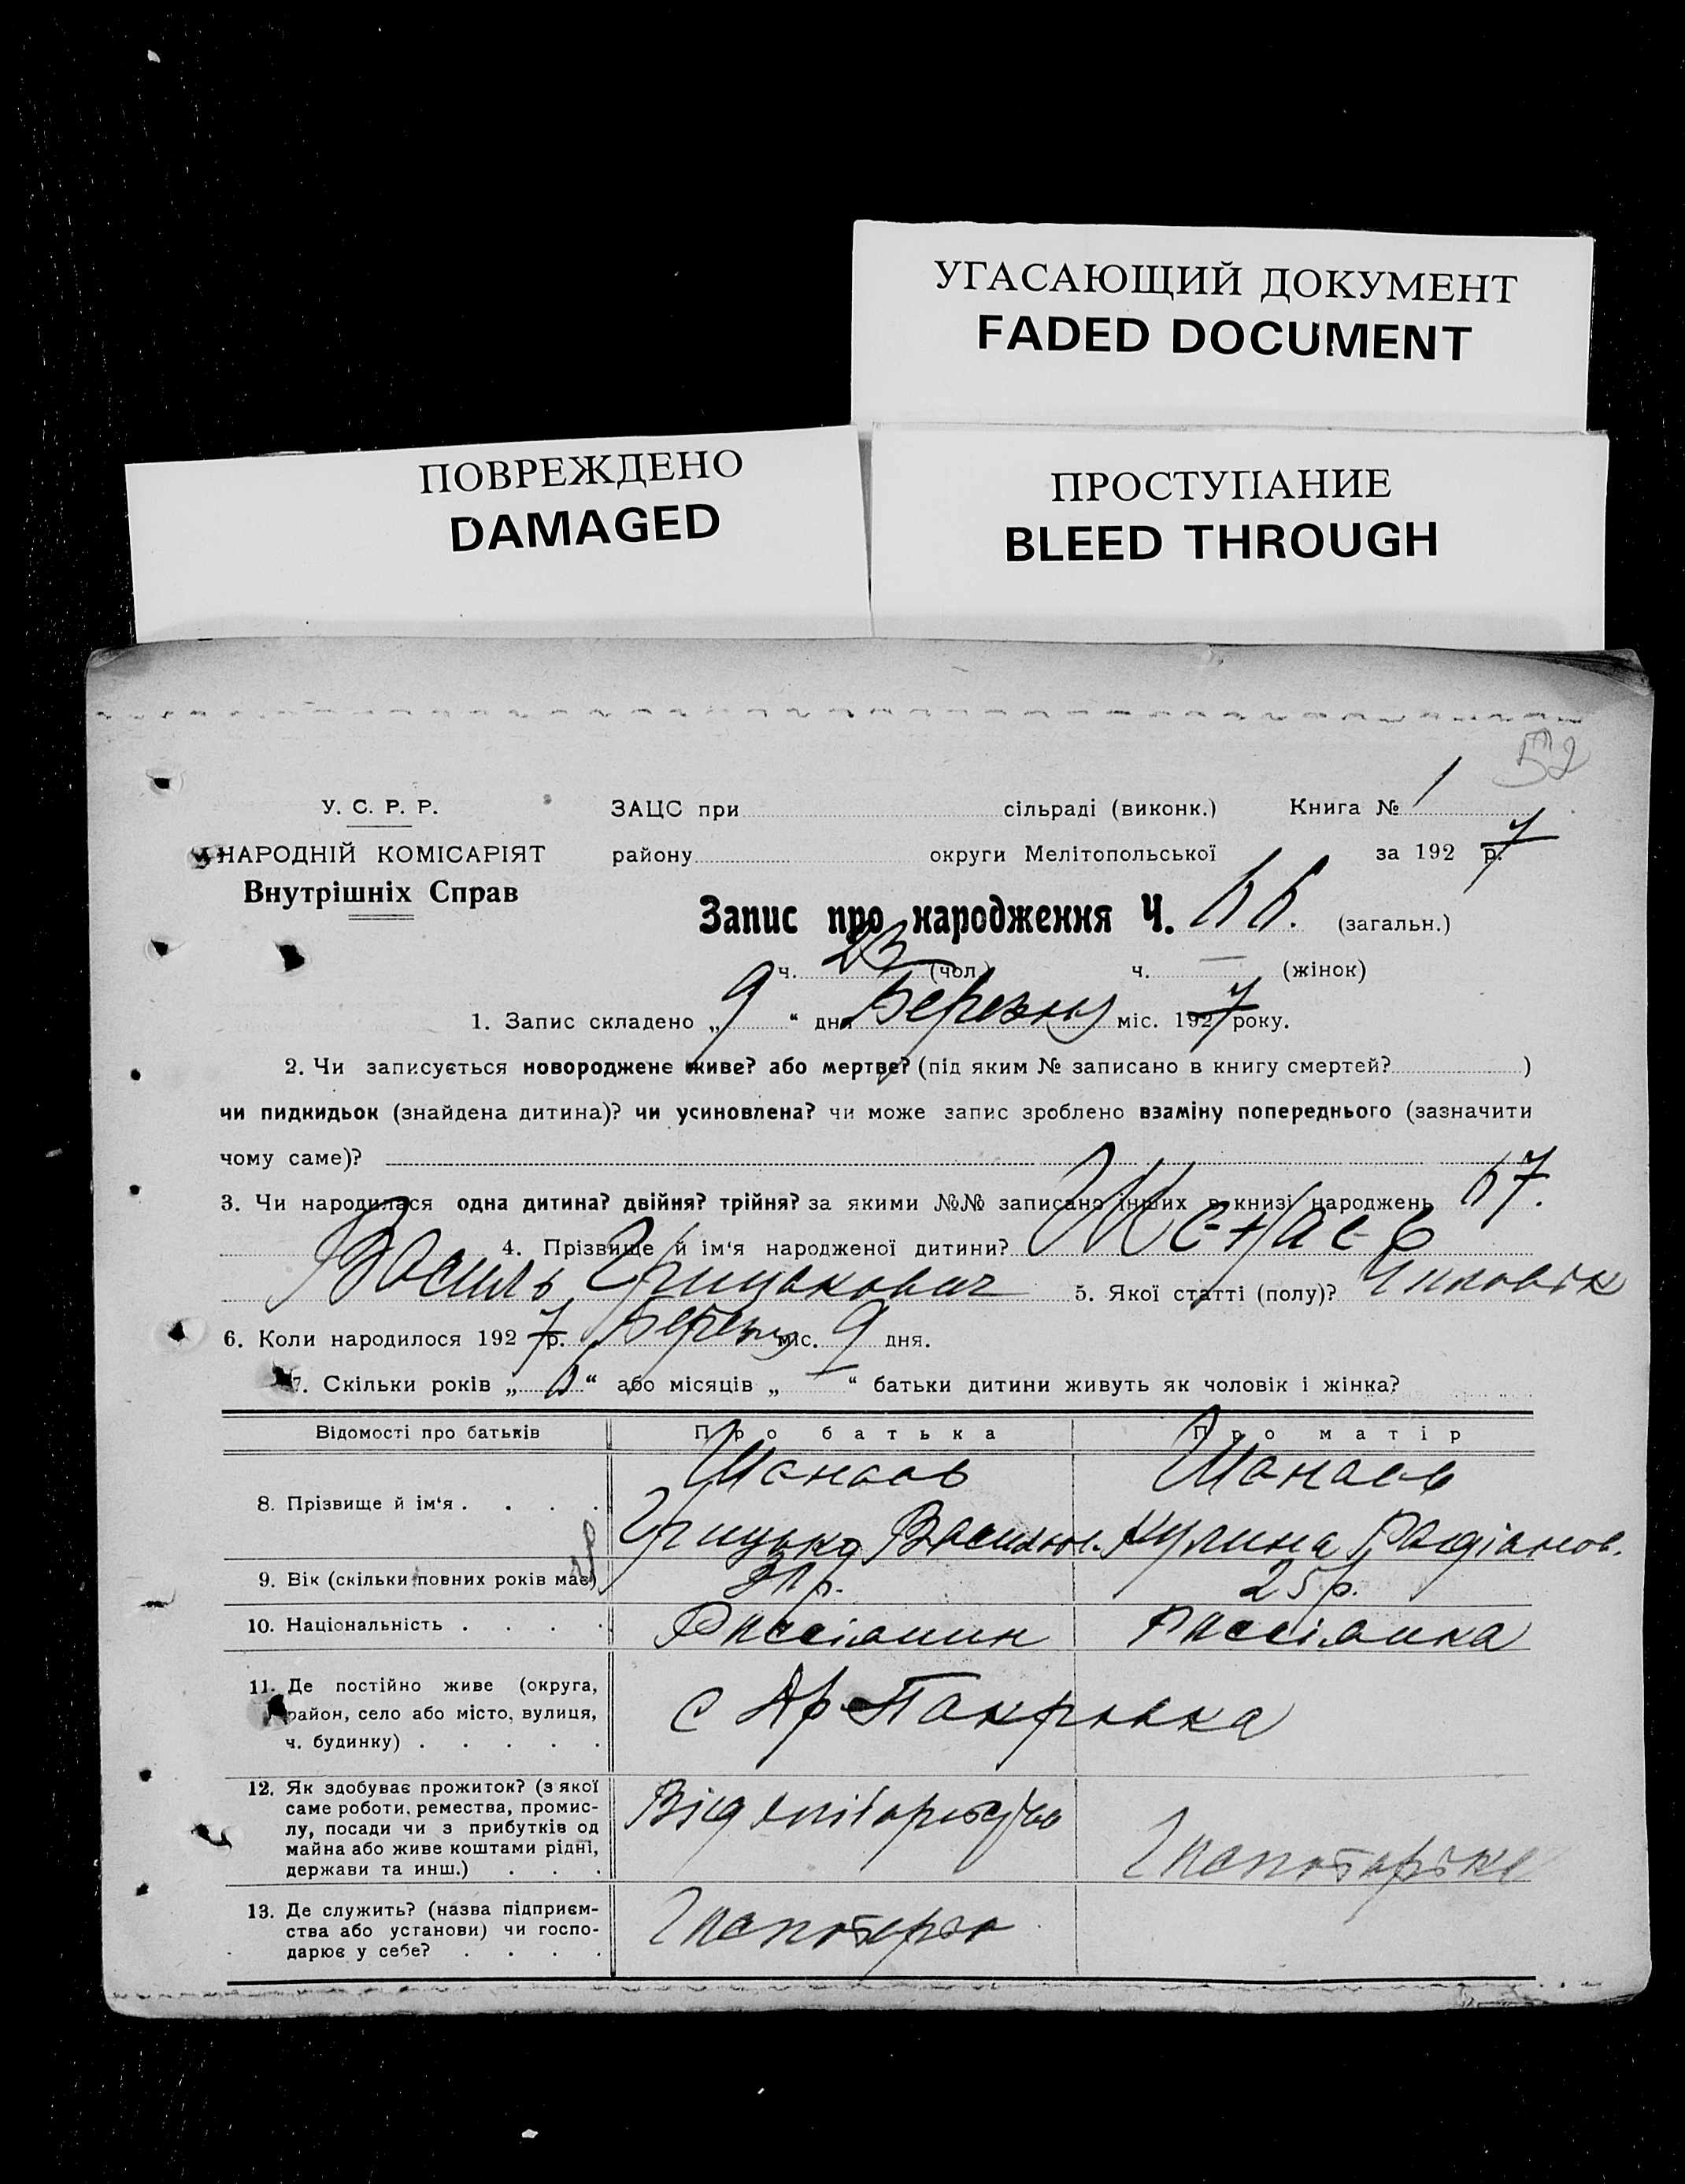 УГАСАЮЩИЙ ДОКУМЕНТ
FADED DOCUMENT
ПОВРЕЖДЕНО
DAMAGED
ПРОСТУПАНИЕ
BLEED THROUGH
52
У. С. Р. Р.
НАРОДНІЙ КОМІСАРІЯТ
Внутрішніх Справ
ЗАЦС при сільраді (виконк.) Книга № 1
району округи Мелітопольської за 192 7 р.
Запис про народження Ч. 66. (загальн.)
ч. 23 (чол.) ч. — (жінок)
1. Запис складено „ 9 “ дня Березня міс. 1927 року.
2. Чи записується новороджене живе? або мертве? (під яким № записано в книгу смертей? )
чи пидкидьок (знайдена дитина)? чи усиновлена? чи може запис зроблено взаміну попереднього (зазначити
чому саме)?
3. Чи народилася одна дитина? двійня? трійня? за якими №№ записано інших в книзі народжень 67.
4. Прізвище й ім‘я народженої дитини?
Василь Грицькович 5. Якої статті (полу)? Чиловік
6. Коли народилося 192 7 р. Березня міс. 9 дня.
7. Скільки років „ 6 “ або місяців „ — “ батьки дитини живуть як чоловік і жінка?
Відомості про батьків Про батька Про матір
8. Прізвище й ім‘я . . . .
Грицько Василов. Кулина Радіанов.
9. Вік (скільки повних років має) 31 р. 25 р.
10. Національність . . . . Руссіанин Руссіанка
11. Де постійно живе (округа,
район, село або місто, вулиця,
ч. будинку) . . . . .
с Ар-Пакровка
12. Як здобуває прожиток? (з якої
саме роботи, ремества, промис-
лу, посади чи з прибутків од
майна або живе коштами рідні,
держави та инш.) . . .
Від
13. Де служить? (назва підприєм-
ства або установи) чи госпо-
дарює у себе? . . . .